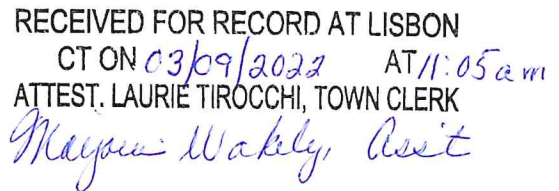 RECEIVED FOR RECORD AT LISBON
CT ON 03/09/2022 AT 11:05 am
ATTEST. LAURIE TIROCCHI, TOWN CLERK
Marjorie Wakely, Asst